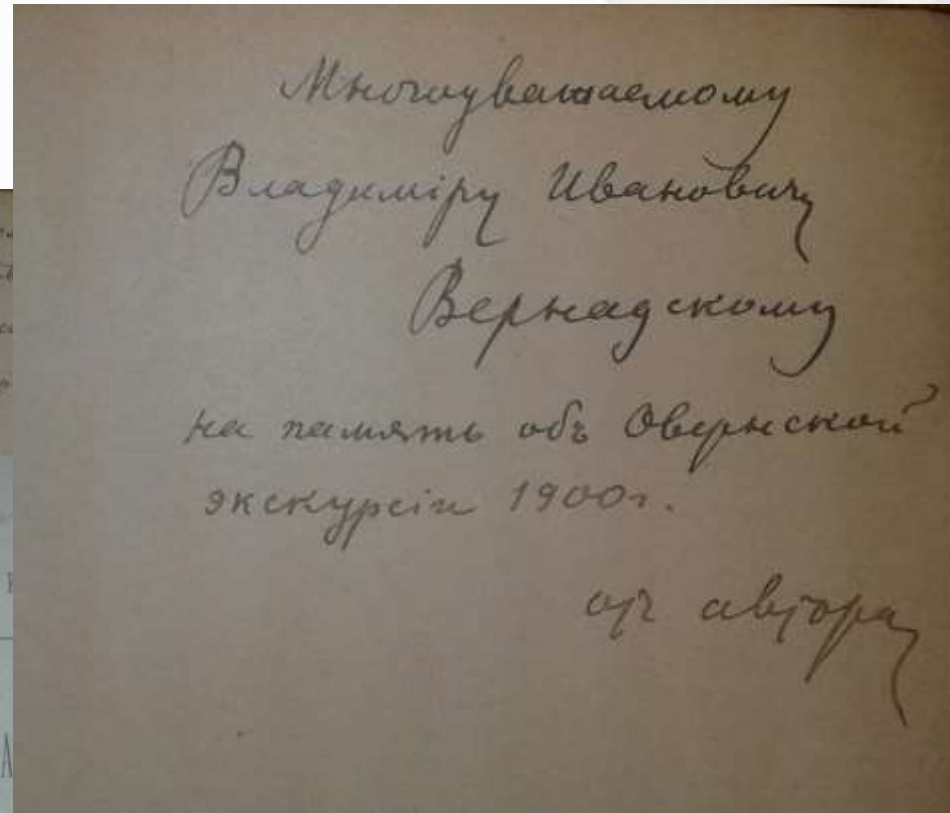 Многоуважаемому
Владиміру Ивановичу
Вернадскому
на память объ Овернской
экскурсіи 1900 г.
отъ автора